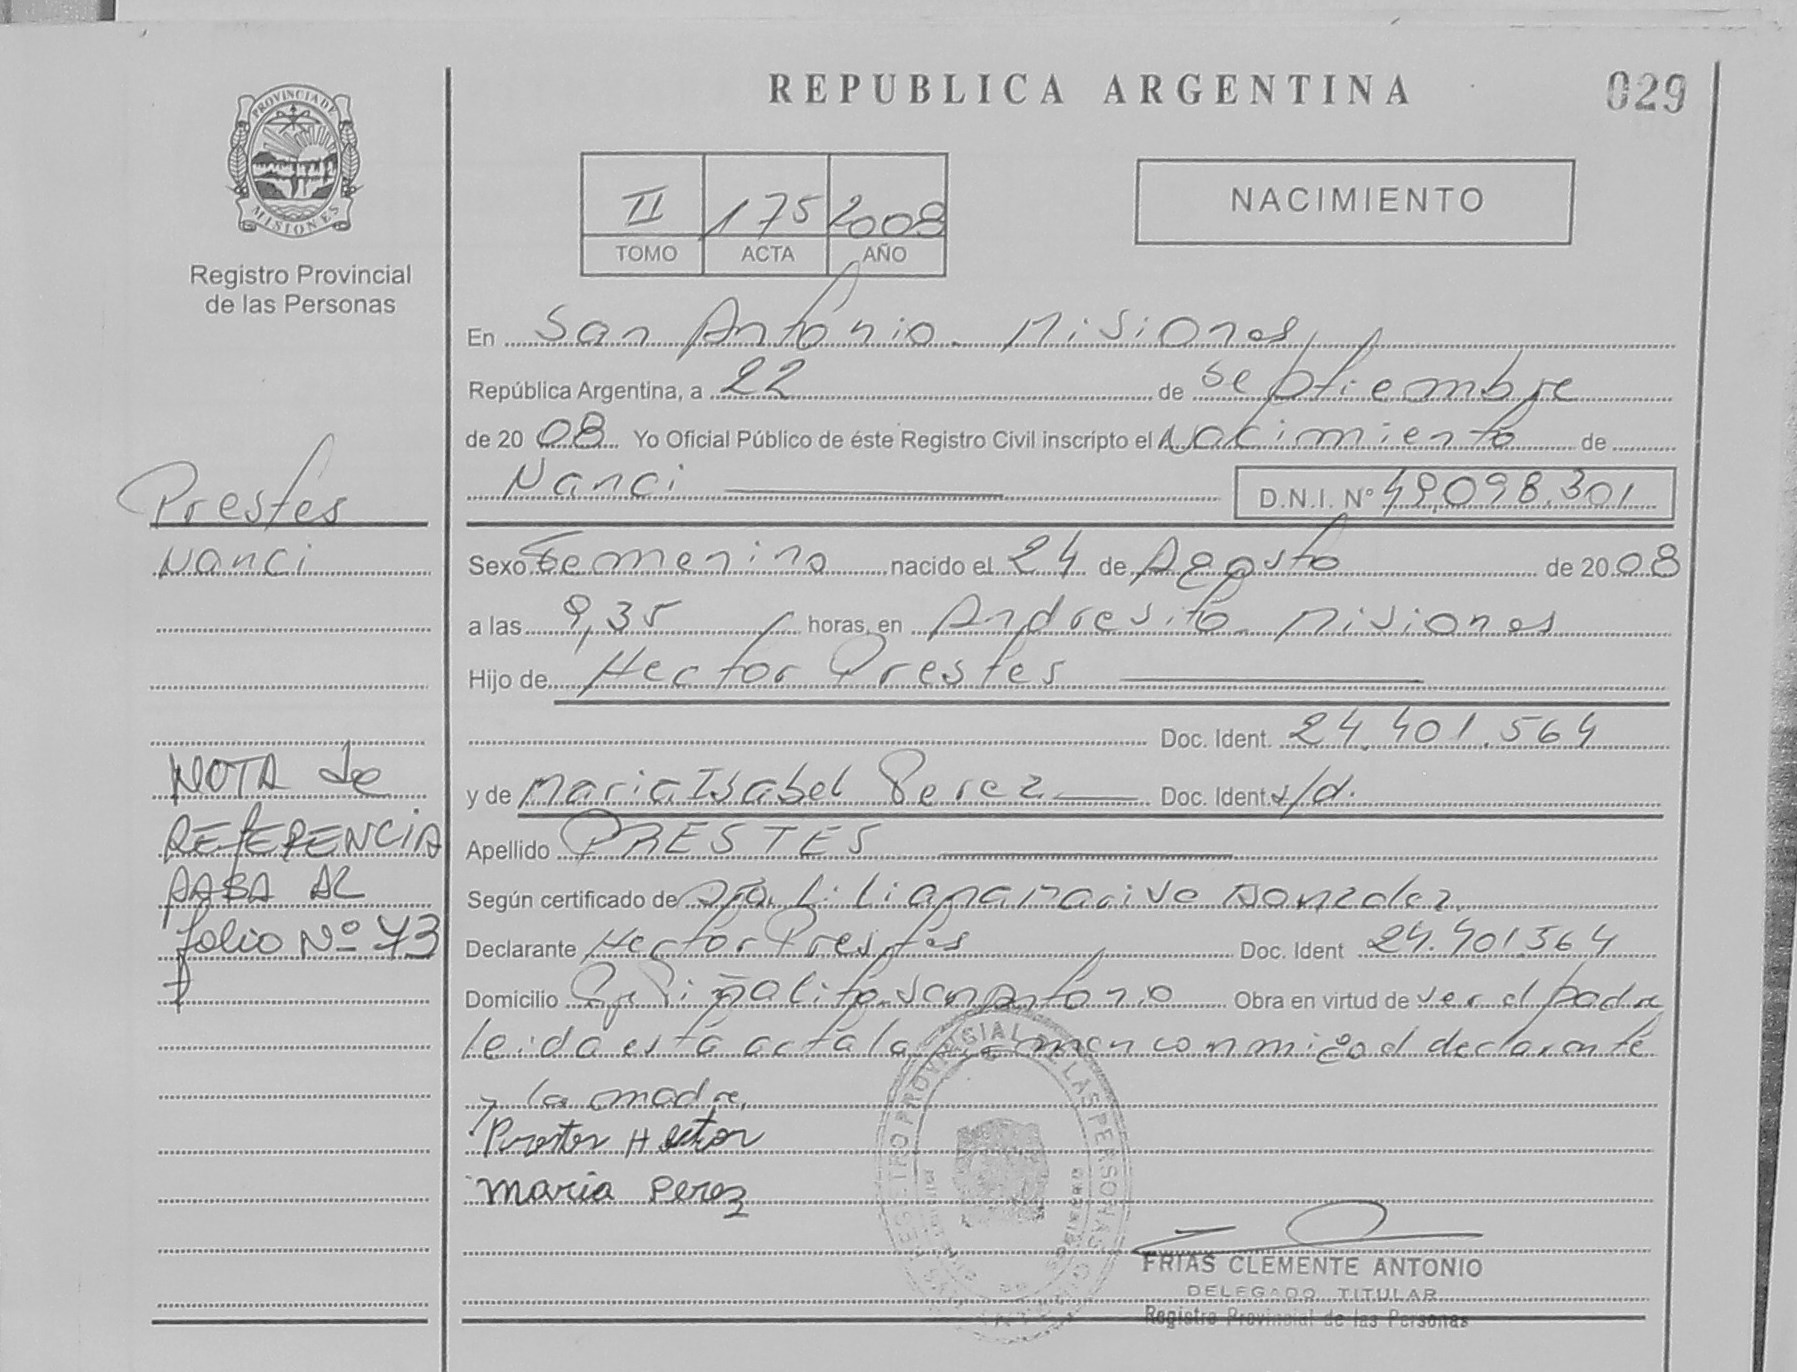 REPUBLICA ARGENTINA
029
PROVINCIA DE
MISIONES
Registro Provincial
de las Personas
II 175 2008
TOMO ACTA AÑO
NACIMIENTO
En San Antonio - Misiones
República Argentina, a 22 de septiembre
de 2008 Yo Oficial Público de éste Registro Civil inscripto el Nacimiento de
Nanci D.N.I. Nº 49.098.301
Prestes
Nanci
Sexo Femenino nacido el 24 de Agosto de 2008
a las 9,35 horas, en Andresito - Misiones
Hijo de Hector Prestes
Doc. Ident. 24.401.564
y de Maria Isabel Perez Doc. Ident. s/d.
Apellido PRESTES
Según certificado de Dra. Liliana Gonzalez
Declarante Hector Prestes Doc. Ident 24.401.564
Domicilio Piñalito San Antonio Obra en virtud de ser el padre
leida esta acta la firman conmigo el declarante
y la madre.
Prestes Hector
Maria Perez
NOTA de
REFERENCIA
PASA AL
folio Nº 73
REGISTRO PROVINCIAL DE LAS PERSONAS
FRIAS CLEMENTE ANTONIO
DELEGADO TITULAR
Registro Provincial de las Personas